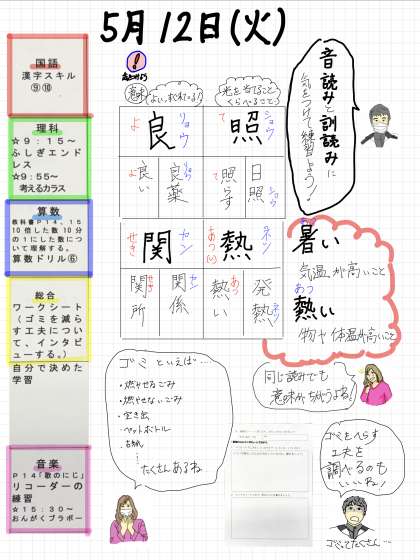 5月12日(火)
国語
漢字スキル
⑨⑩
理科
☆9：15～
ふしぎエンド
レス
☆9:55～
考えるカラス
算数
教科書P14、15
10倍した数10分
の1にした数につ
いて理解する。
算数ドリル⑥
総合
ワークシート
（ゴミを減ら
す工夫につい
て、インタビ
ューする。）
自分で決めた
学習
音楽
P14「歌のにじ」
リコーダーの
練習
☆15：30～
おんがくブラボー
!
意味
よい、すぐれている!
光を当てること
くらべること
音読みと訓読みに
気をつけて練習しよう!
照
ショウ
て
日照
ショウ
照らす
て
良
リョウ
よ
良薬
リョウ
良い
よ
熱
ネツ
あつ
(い)
発熱
ネツ
熱い
あつ
関
カン
せき
関係
カン
関所
せき
暑い
気温が高いこと
あつ
熱い
物や体温が高いこと
同じ読みでも
意味がちがうよね!
ゴミといえば…
・燃やせるごみ
・燃やせないごみ
・空き缶
・ペットボトル
・古紙
たくさんあるね
ゴミをへらす
工夫を
調べるのも
いいね!
ゴミってたくさん…